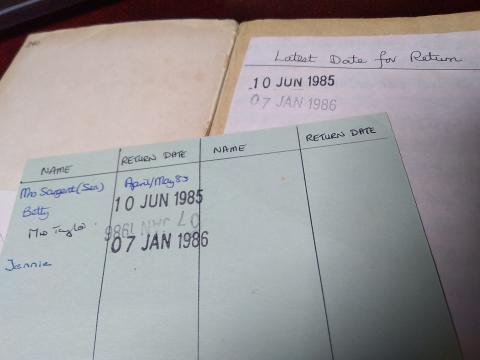 Latest Date for Return
10 JUN 1985
07 JAN 1986
NAME RETURN DATE NAME RETURN DATE
Mrs Sargent (Sen) April/May 83
Betty 10 JUN 1985
Mrs 07 JAN 1986
07 JAN 1986
Jennie